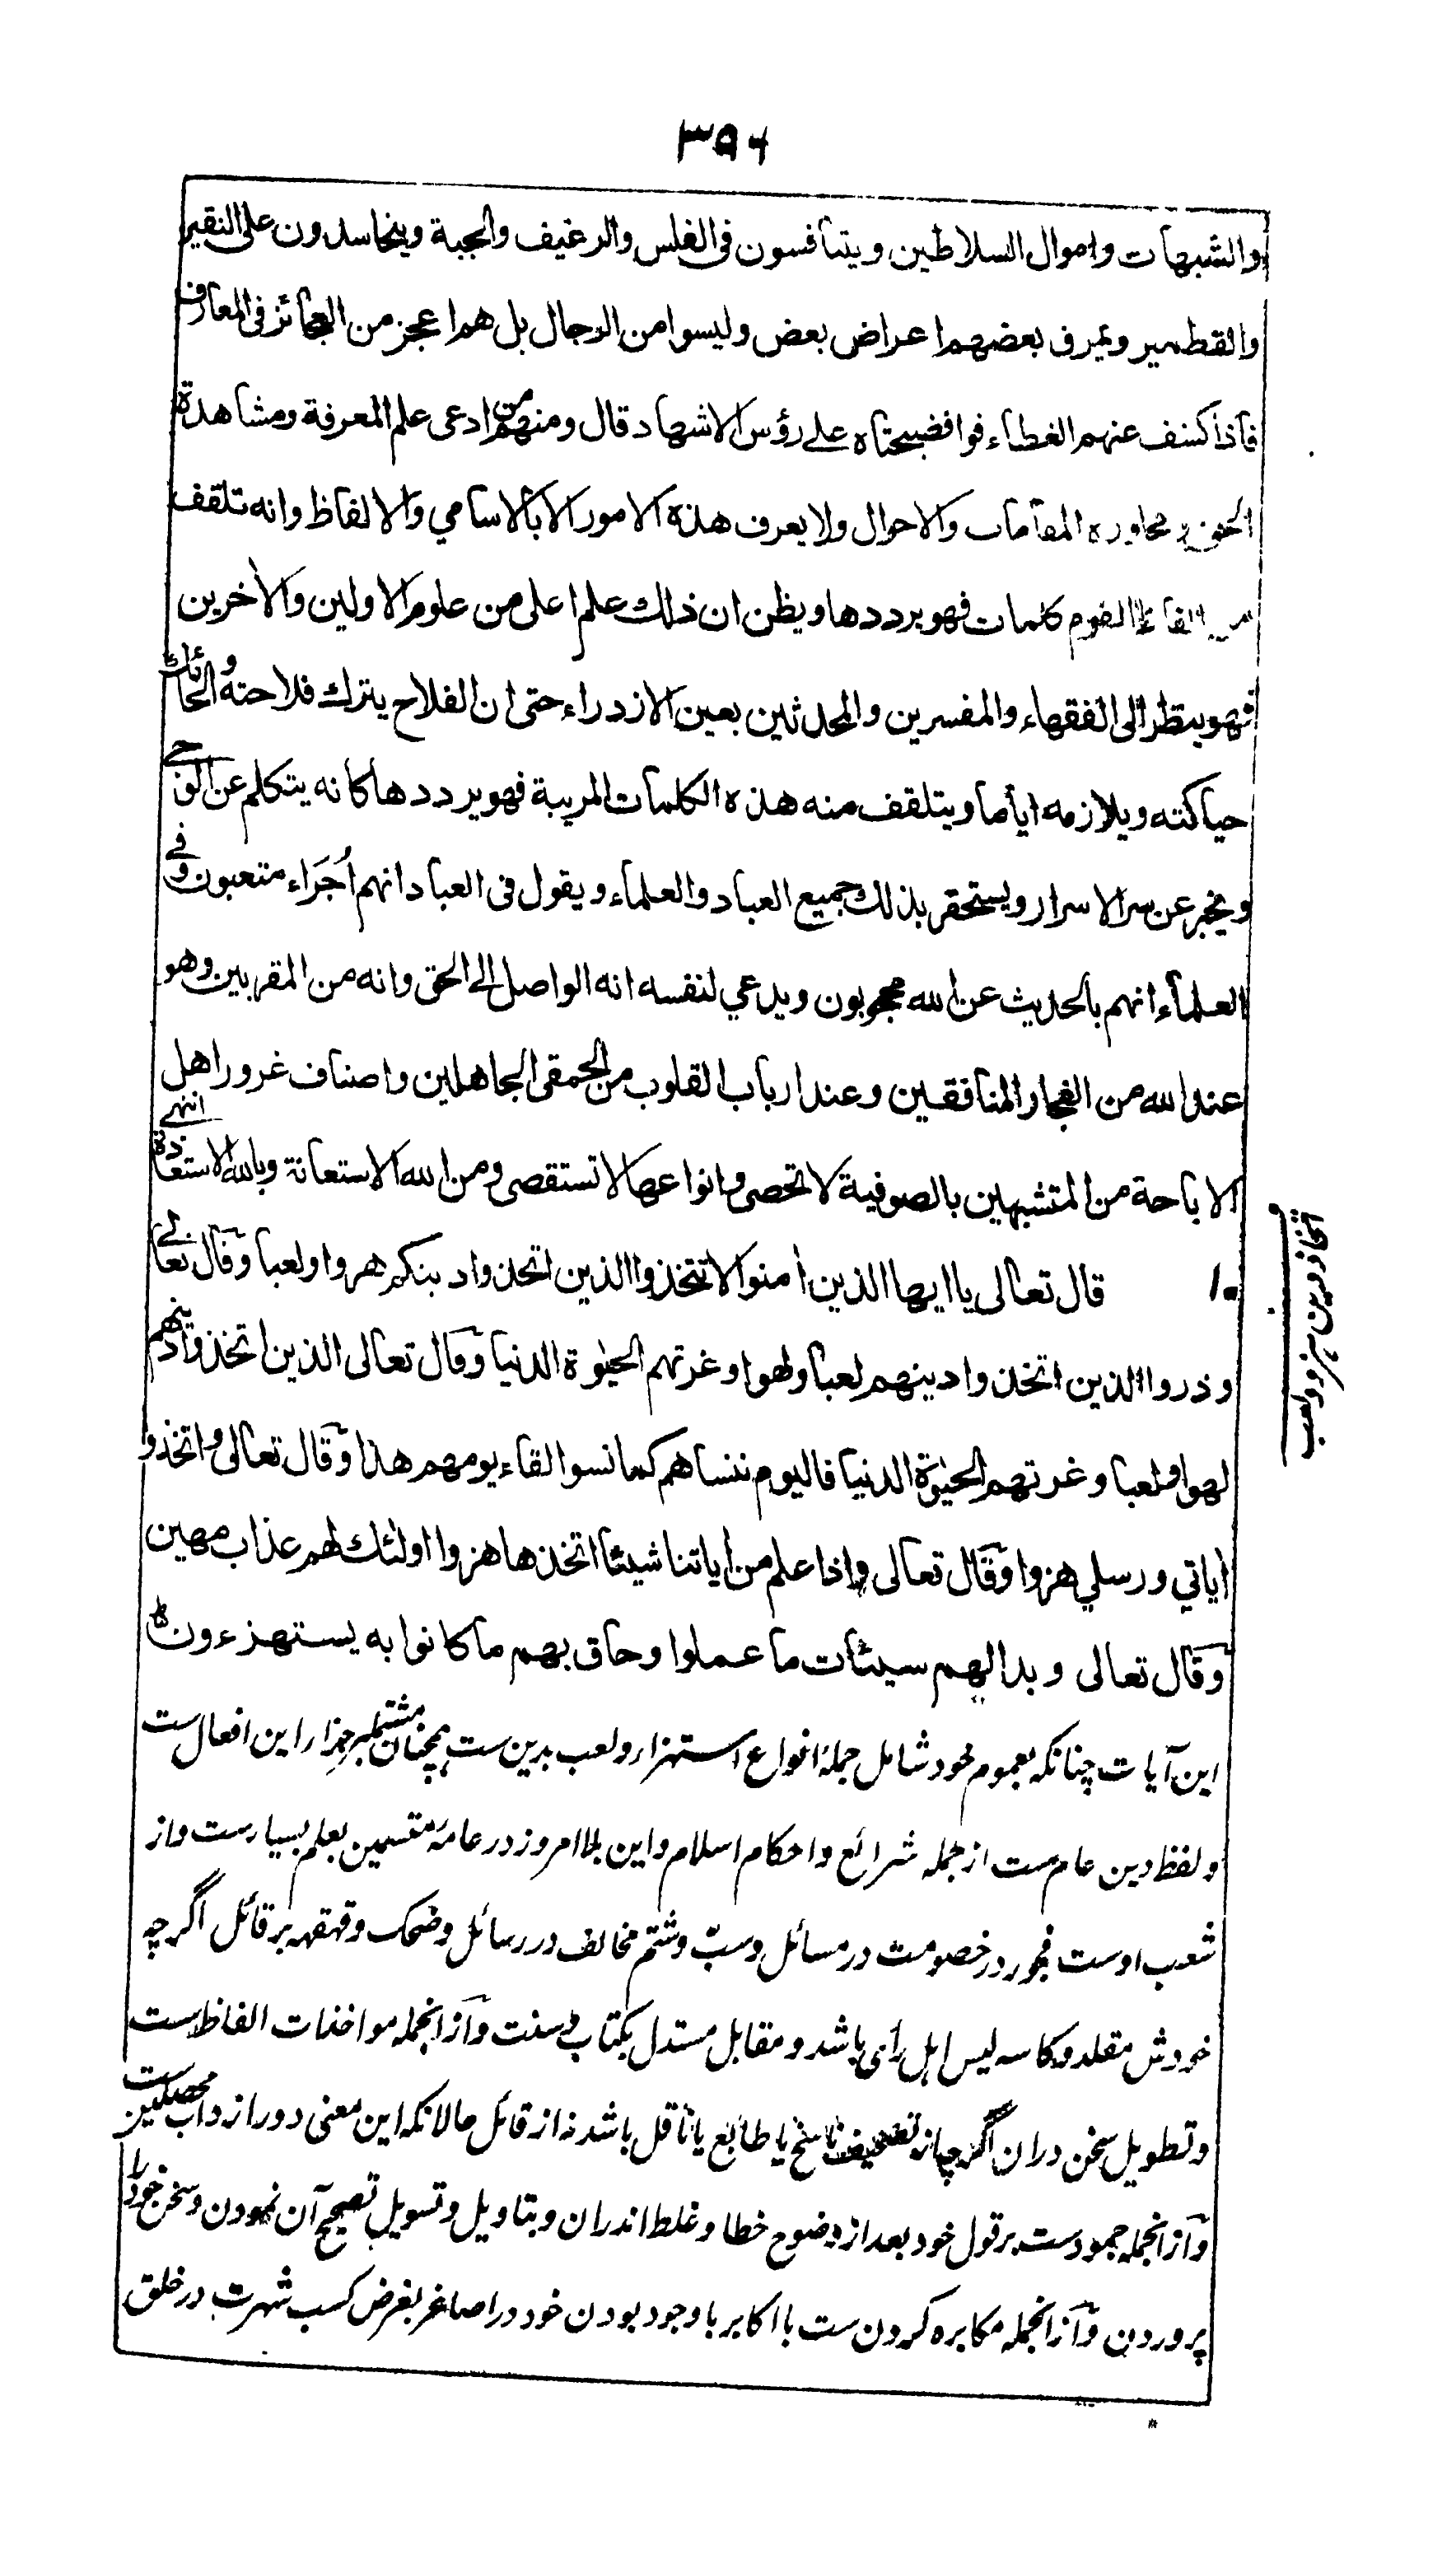 ۳۵۶
والشبهات واموال السلاطين ويتنافسون فى الفلس والرغيف والحبة ويتحاسدون على النقير
والقطمير ويمزق بعضهم اعراض بعض وليسوا من الرجال بل هم اعجز من العجائز فى المعارف
فاذا كشف عنهم الغطاء فوافضيحتاه على رؤس الاشهاد قال ومنهم من ادعى علم المعرفة ومشاهدة
الحق ومجاورة المقامات والاحوال ولا يعرف هذه الامور الا بالاسامي والالفاظ وانه تلقف
من الفاظ القوم كلمات فهو يرددها ويظن ان ذلك علم اعلى من علوم الاولين والأخرين
فهو ينظر الى الفقهاء والمفسرين والمحدثين بعين الازدراء حتى ان الفلاح يترك فلاحته والحائك
حياكته ويلازمه اياما ويتلقف منه هذه الكلمات المريبة فهو يرددها كانه يتكلم عن الوحي
ويخبر عن سر الاسرار ويستحقر بذلك جميع العباد والعلماء ويقول فى العباد انهم أُجَرَاء متعبون وفي
العلماء انهم بالحديث عن الله محجوبون ويدعي لنفسه انه الواصل الى الحق وانه من المقربين وهو
عند الله من الفجار المنافقين وعند ارباب القلوب من الحمقى الجاهلين واصناف غرور اهل
الاباحة من المتشبهين بالصوفية لا تحصى وانواعها لا تستقصى ومن الله الاستعانة وبالله الاستعاذة انتهى
۱۰ قال تعالى يا ايها الذين أمنوا لا تتخذوا الذين اتخذوا دينكم هزوا ولعبا وقال تعالى
وذروا الذين اتخذوا دينهم لعبا ولهوا وغرتهم الحيوة الدنيا وقال تعالى الذين اتخذوا دينهم
لهوا ولعبا وغرتهم الحيوة الدنيا فاليوم ننساهم كما نسوا لقاء يومهم هذا وقال تعالى واتخذوا
أياتي ورسلي هزوا وقال تعالى واذا علم من أياتنا شيئا اتخذها هزوا اولئك لهم عذاب مهين
وقال تعالى وبدا لهم سيئات ما عملوا وحاق بهم ما كانوا به يستهزءون ط
این آیات چنانکه بعموم خود شامل جملۀ انواع استهزاء ولعب بدین ست همچنان مشتمل بر جزاء این افعال ست
ولفظ دین عام ست از جمله شرائع واحکام اسلام واین بلا امروز در عامۂ متسمین بعلم بسیارست واز
شعب اوست فجور در خصومت در مسائل وسبّ وشتم مخالف در رسائل وضحک وقهقهه بر قائل اگرچه
خودش مقلد وکاسه لیس اہل رأی باشد ومقابل مستدل بکتاب وسنت وآزانجمله مواخذات الفاظ ست
وتطویل سخن دران اگرچه از تصحیف ناسخ یا طابع یا ناقل باشد نه از قائل حالانکه این معنی دور از داب محصلین ست
وآزانجمله جمودست بر قول خود بعد از وضوح خطا وغلط اندران وبتاویل وتسویل تصحیح آن نمودن وسخن خود را
پروردن وآزانجمله مکابره کردن ست با اکابر باوجود بودن خود در اصاغر بغرض کسب شهرت در خلق
اتخاذ دین بهزو ولعب